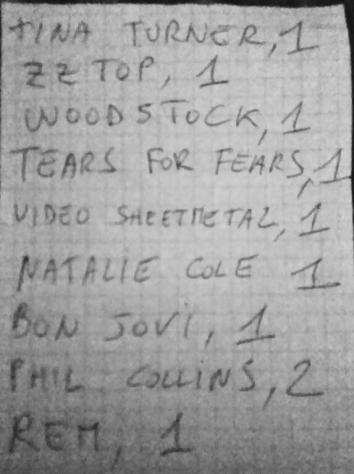 TINA TURNER, 1
ZZ TOP, 1
WOODSTOCK, 1
TEARS FOR FEARS, 1
VIDEO SHEETMETAL, 1
NATALIE COLE 1
BON JOVI, 1
PHIL COLLINS, 2
REM, 1